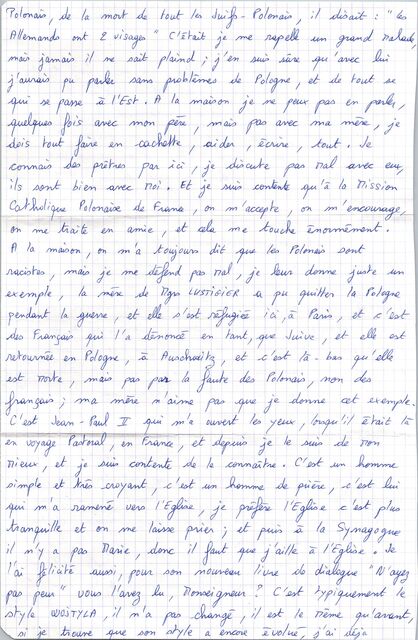 Polonais, de la mort de tout les Juifs-Polonais, il disait : "Les
Allemands ont 2 visages" C'était je me rapelle un grand malade,
mais jamais il ne sait plaind ; j'en suis sûre qu'avec lui
j'aurais pu parler sans problèmes de Pologne, et de tout se
qui se passe à l'Est. A la maison je ne peux pas en parler,
quelques fois avec mon père, mais pas avec ma mère, je
dois tout faire en cachette, aider, écrire, tout. Je
connais des prêtres par ici, je discute pas mal avec eux,
ils sont bien avec moi. Et je suis contente qu'à la Mission
Catholique Polonaise de France, on m'accepte, on m'encourage,
on me traite en amie, et cela me touche énormément.
A la maison, on m'a toujours dit que les Polonais sont
racistes, mais je me défend pas mal, je leur donne juste un
exemple, la mère de Mgrs LUSTIGIER a pu quitter la Pologne
pendant la guerre, et elle s'est réfugiée ici, à Paris, et c'est
des Français qui l'a dénoncé en tant, que Juive, et elle est
retournée en Pologne, à Auschwitz, et c'est là-bas qu'elle
est morte, mais pas par la faute des Polonais, non des
français ; ma mère n'aime pas que je donne cet exemple.
C'est Jean-Paul II qui m'a ouvert les yeux, lorsqu'il était là
en voyage Pastoral, en France, et depuis je le suis de mon
mieux, et je suis contente de le connaître. C'est un homme
simple et très croyant, c'est un homme de prière, c'est lui
qui m'a ramené vers l'Eglise, je préfère l'Eglise c'est plus
tranquille et on me laisse prier ; et puis à la Synagogue
il n'y a pas Marie, donc il faut que j'aille à l'Eglise. Je
l'ai félicité aussi, pour son nouveau livre de dialogue "N'ayez
pas peur" vous l'avez lu, Monseigneur ? C'est typiquement le
style WOJTYLA, il n'a pas changé, il est le même qu'avant
si je trouve que son style a encore évolué, j'ai déjà